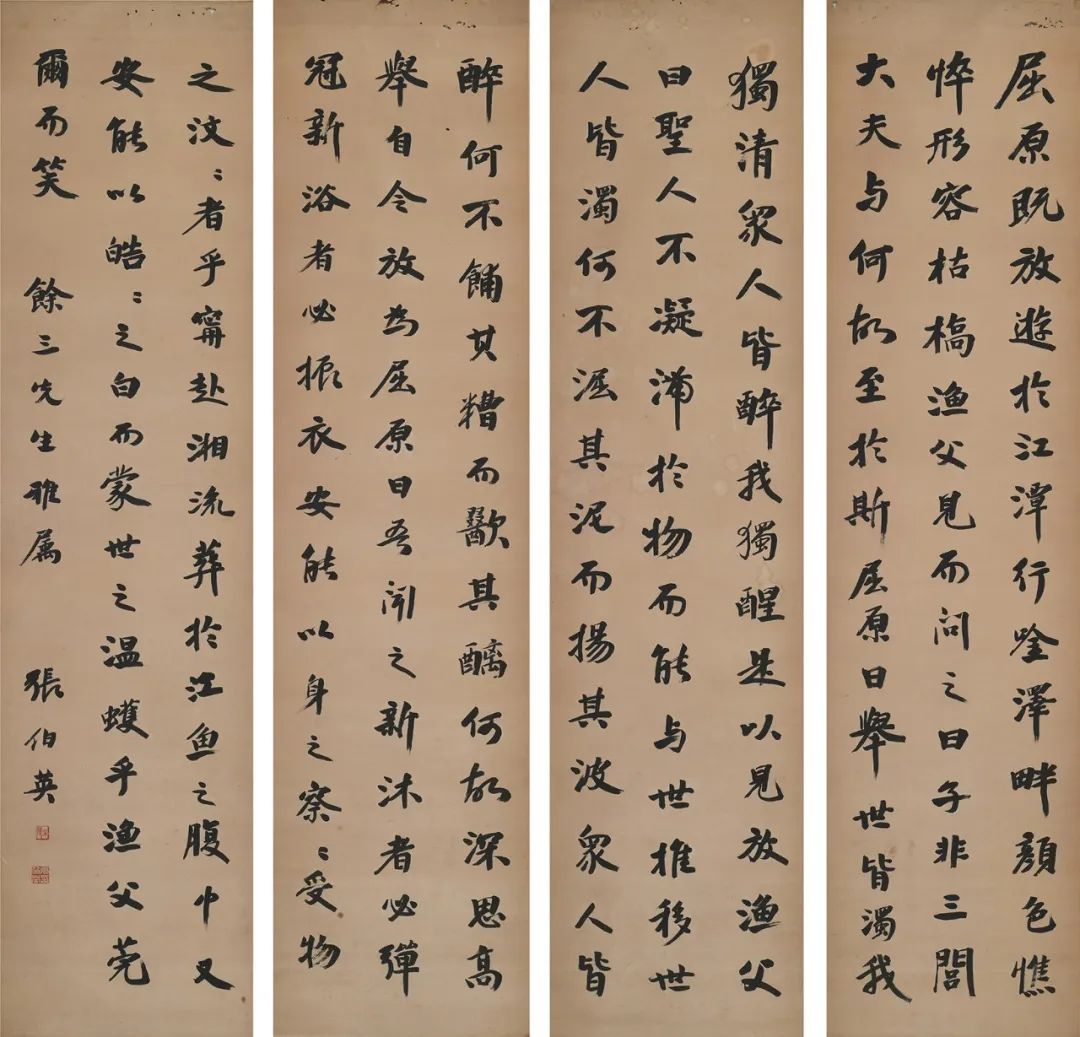 屈原既放遊於江潭行唫澤畔顏色憔
悴形容枯槁渔父見而问之曰子非三閭
大夫与何故至於斯屈原曰舉世皆濁我
獨清眾人皆醉我獨醒是以見放渔父
曰聖人不凝滯於物而能与世推移世
人皆濁何不淈其泥而揚其波眾人皆
醉何不餔其糟而歠其醨何故深思高
舉自令放為屈原曰吾闻之新沐者必彈
冠新浴者必振衣安能以身之察〻受物
之汶〻者乎甯赴湘流葬於江鱼之腹中又
安能以皓〻之白而蒙世之温蠖乎渔父莞
爾而笑 餘三先生雅属 張伯英